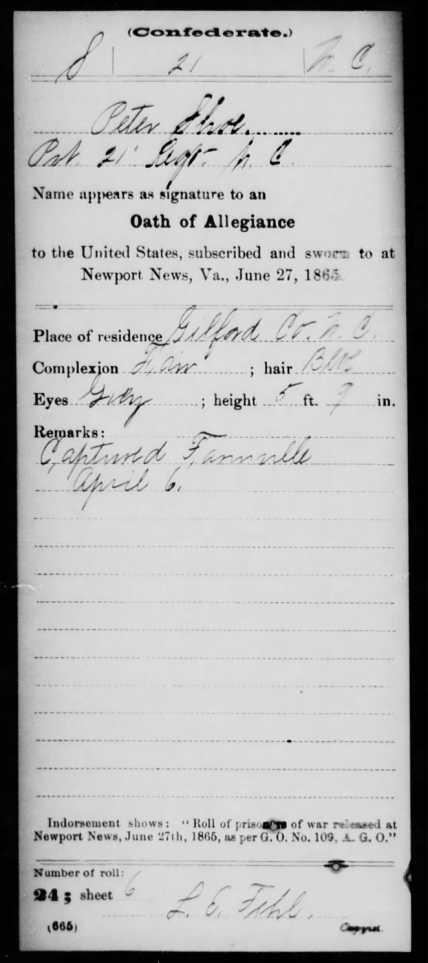 (Confederate.)
S 21 N. C.
Peter Shoe
Pvt. 21' Regt. N. C.
Name appears as signature to an
Oath of Allegiance
to the United States, subscribed and sworn to at
Newport News, Va., June 27, 1865.
Place of residence Gilford Co. N. C.
Complexion Fair ; hair Blk
Eyes Grey ; height 5 ft. 9 in.
Remarks:
Captured Farmville
April 6.
Indorsement shows: "Roll of prisoners of war released at
Newport News, June 27th, 1865, as per G. O. No. 109, A. G. O."
Number of roll:
24; sheet 6
(665) Copyist.